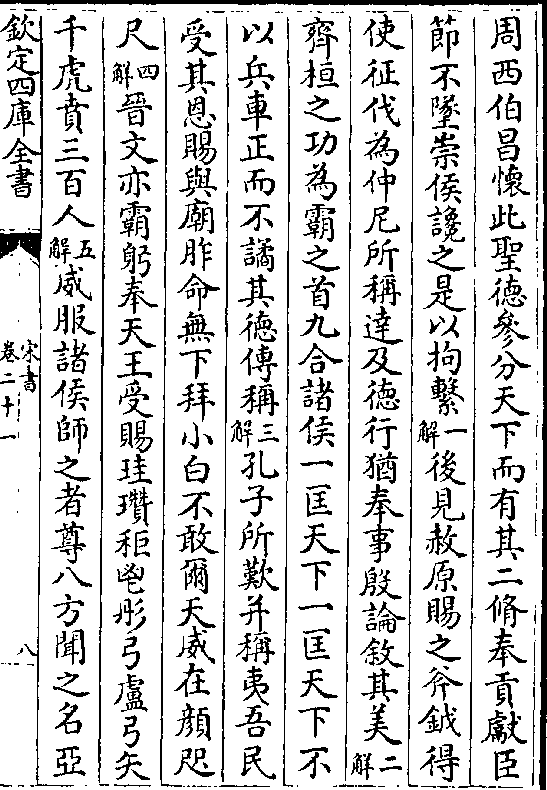 周西伯昌懷此聖德參分天下而有其二脩奉貢獻臣
節不墜崇侯讒之是以拘繫一解後見赦原賜之斧鉞得
使征伐為仲尼所稱達及德行猶奉事殷論敘其美二解
齊桓之功為霸之首九合諸侯一匡天下一匡天下不
以兵車正而不譎其德傳稱三解孔子所歎并稱夷吾民
受其恩賜與廟胙命無下拜小白不敢爾天威在顔咫
尺四解晉文亦霸躬奉天王受賜珪瓚秬鬯彤弓盧弓矢
千虎賁三百人五解威服諸侯師之者尊八方聞之名亞
欽定四庫全書
宋書
卷二十一
八